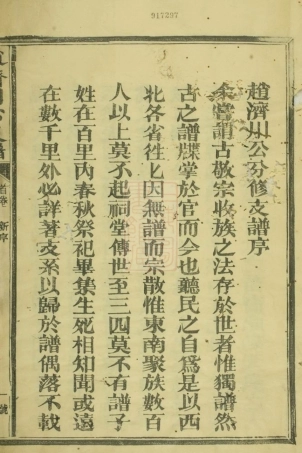 917397
趙濟州公分修支譜序
余嘗謂古敬宗收族之法存於世者惟獨譜然
古之譜牒掌於官而今也聽民之自為是以西
北各省徃徃因無譜而宗散惟東南聚族數百
人以上莫不起祠堂傳世至三四莫不有譜子
姓在百里內春秋祭祀畢集生死相知聞或遠
在數千里外必詳著支系以歸於譜偶落不載